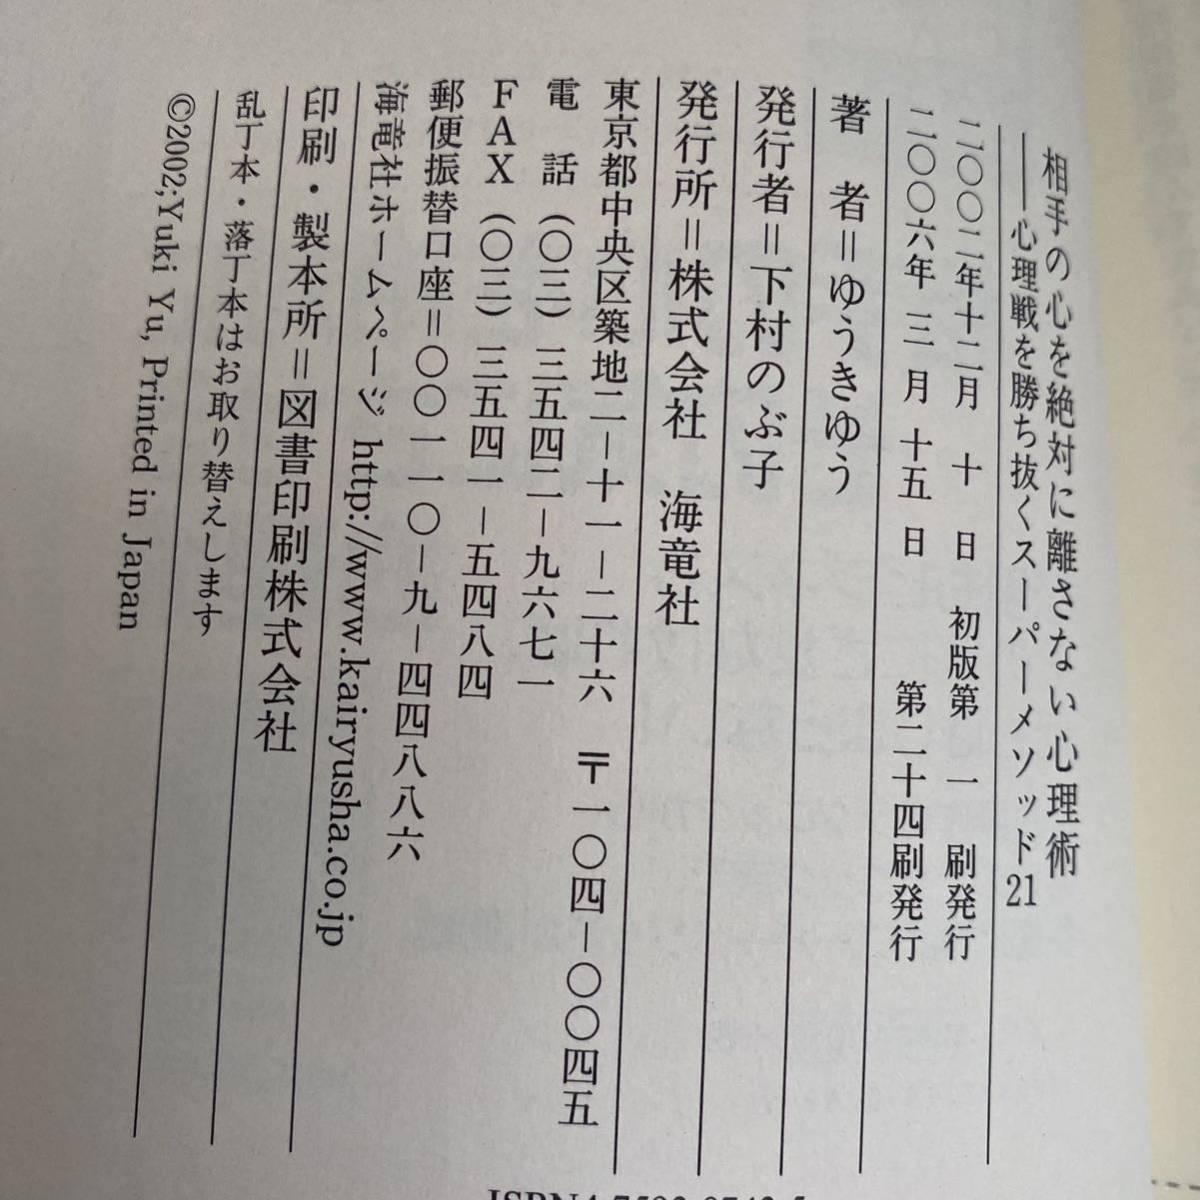 相手の心を絶対に離さない心理術
――心理戦を勝ち抜くスーパーメソッド21
二〇〇二年十二月 十 日 初版第 一 刷発行
二〇〇六年 三 月 十五 日 第二十四刷発行
著 者＝ゆうきゆう
発行者＝下村のぶ子
発行所＝株式会社 海竜社
東京都中央区築地二－十一－二十六 〒一〇四－〇〇四五
電 話（〇三）三五四二－九六七一
ＦＡＸ（〇三）三五四一－五四八四
郵便振替口座＝〇〇一一〇－九－四四八八六
海竜社ホームページ http://www.kairyusha.co.jp
印刷・製本所＝図書印刷株式会社
乱丁本・落丁本はお取り替えします
©2002;Yuki Yu, Printed in Japan